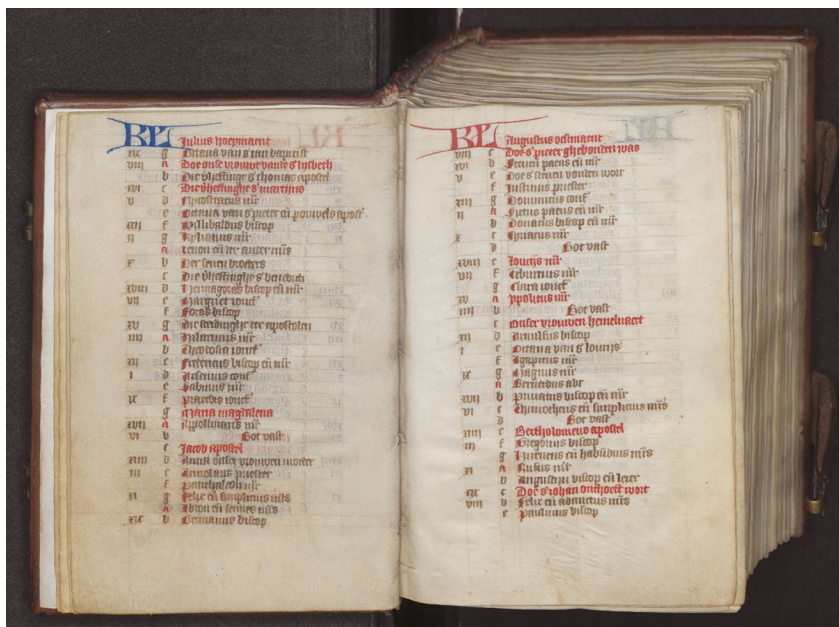 KL Julius hoeymaent
xix g Octava van s ian baptist
viii a Doe onse vrouwe vande s lysbeth
b Die vheffinge s thomas apostel
xvi c Die vheffinghe s martijns
v d
e Octava van s pieter eñ pouwels apost
xiii f Willibaldus biscop
ii g Kylianus mr
a
x b Der seven broeders
c Die vheffinghe s benedict
xviii d Hermagoras biscop eñ mr
vii e Margriet ionc
f Foras biscop
xv g Die sceidinghe der apostolen
iiii a Hilarinus mr
b Theodosia ionc
xii c Fredericus biscop eñ mr
i d Arsenius conf
e Sabinus mr
ix f Praxedis ionc
g Maria magdalena
xvii a Appollinaris mr
vi b Sot vast
c Jacob apostel
xiiii d Anna onser vrouwen moeder
iii e priester
f Panthaleon mr
xi g Felix eñ simplicius mrs
a Abdon eñ sennes mrs
xix b Germanus biscop
KL Augustus oestmaent
viii c Doe s pieter ghebonden was
xvi d Steven paeus eñ mr
v e Doe s steven vonden wort
f Justinus priester
xiii g Dominicus conf
ii a Sixtus paeus eñ mr
b Donatus biscop eñ mr
x c Cyriacus mr
d Sot vast
xviii e Lourijs mr
vii f Tiburtius mr
g Clara ionc
xv a Ypolitus mr
iiii b Sot vast
c Onser vrouwen hemelvaert
xii d Arnulfus biscop
i e Octava van s lourijs
f Agapitus mr
ix g Magnus mr
a Bernardus abt
xvii b Privatus biscop eñ mr
vi c Thimotheus eñ simplicius mrs
d Sot vast
xiiii e Bertholomeus apostel
iii f Gregorius biscop
g Hireneus eñ habundius mrs
xi a Rufus mr
b Augustijn biscop eñ leier
xix c Doe s iohan onthoeft wort
viii d Felix eñ adauctus mrs
e Paulinus biscop